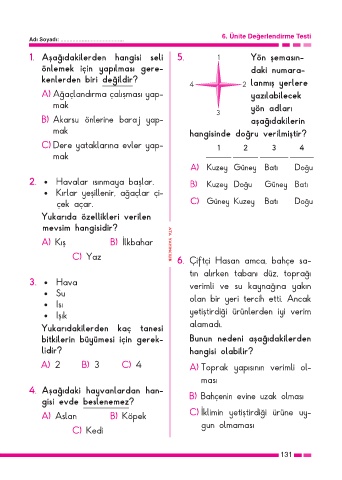 Adı Soyadı: ........................................
6. Ünite Değerlendirme Testi
1. Aşağıdakilerden hangisi seli
önlemek için yapılması gere-
kenlerden biri değildir?
A) Ağaçlandırma çalışması yap-
mak
B) Akarsu önlerine baraj yap-
mak
C) Dere yataklarına evler yap-
mak
2. • Havalar ısınmaya başlar.
• Kırlar yeşillenir, ağaçlar çi-
çek açar.
Yukarıda özellikleri verilen
mevsim hangisidir?
A) Kış B) İlkbahar
C) Yaz
3. • Hava
• Su
• Isı
• Işık
Yukarıdakilerden kaç tanesi
bitkilerin büyümesi için gerek-
lidir?
A) 2 B) 3 C) 4
4. Aşağıdaki hayvanlardan han-
gisi evde beslenemez?
A) Aslan B) Köpek
C) Kedi
5. 1 Yön şemasın-
daki numara-
4 2 lanmış yerlere
yazılabilecek
3 yön adları
aşağıdakilerin
hangisinde doğru verilmiştir?
1 2 3 4
A) Kuzey Güney Batı Doğu
B) Kuzey Doğu Güney Batı
C) Güney Kuzey Batı Doğu
6. Çiftçi Hasan amca, bahçe sa-
tın alırken tabanı düz, toprağı
verimli ve su kaynağına yakın
olan bir yeri tercih etti. Ancak
yetiştirdiği ürünlerden iyi verim
alamadı.
Bunun nedeni aşağıdakilerden
hangisi olabilir?
A) Toprak yapısının verimli ol-
ması
B) Bahçenin evine uzak olması
C) İklimin yetiştirdiği ürüne uy-
gun olmaması
131